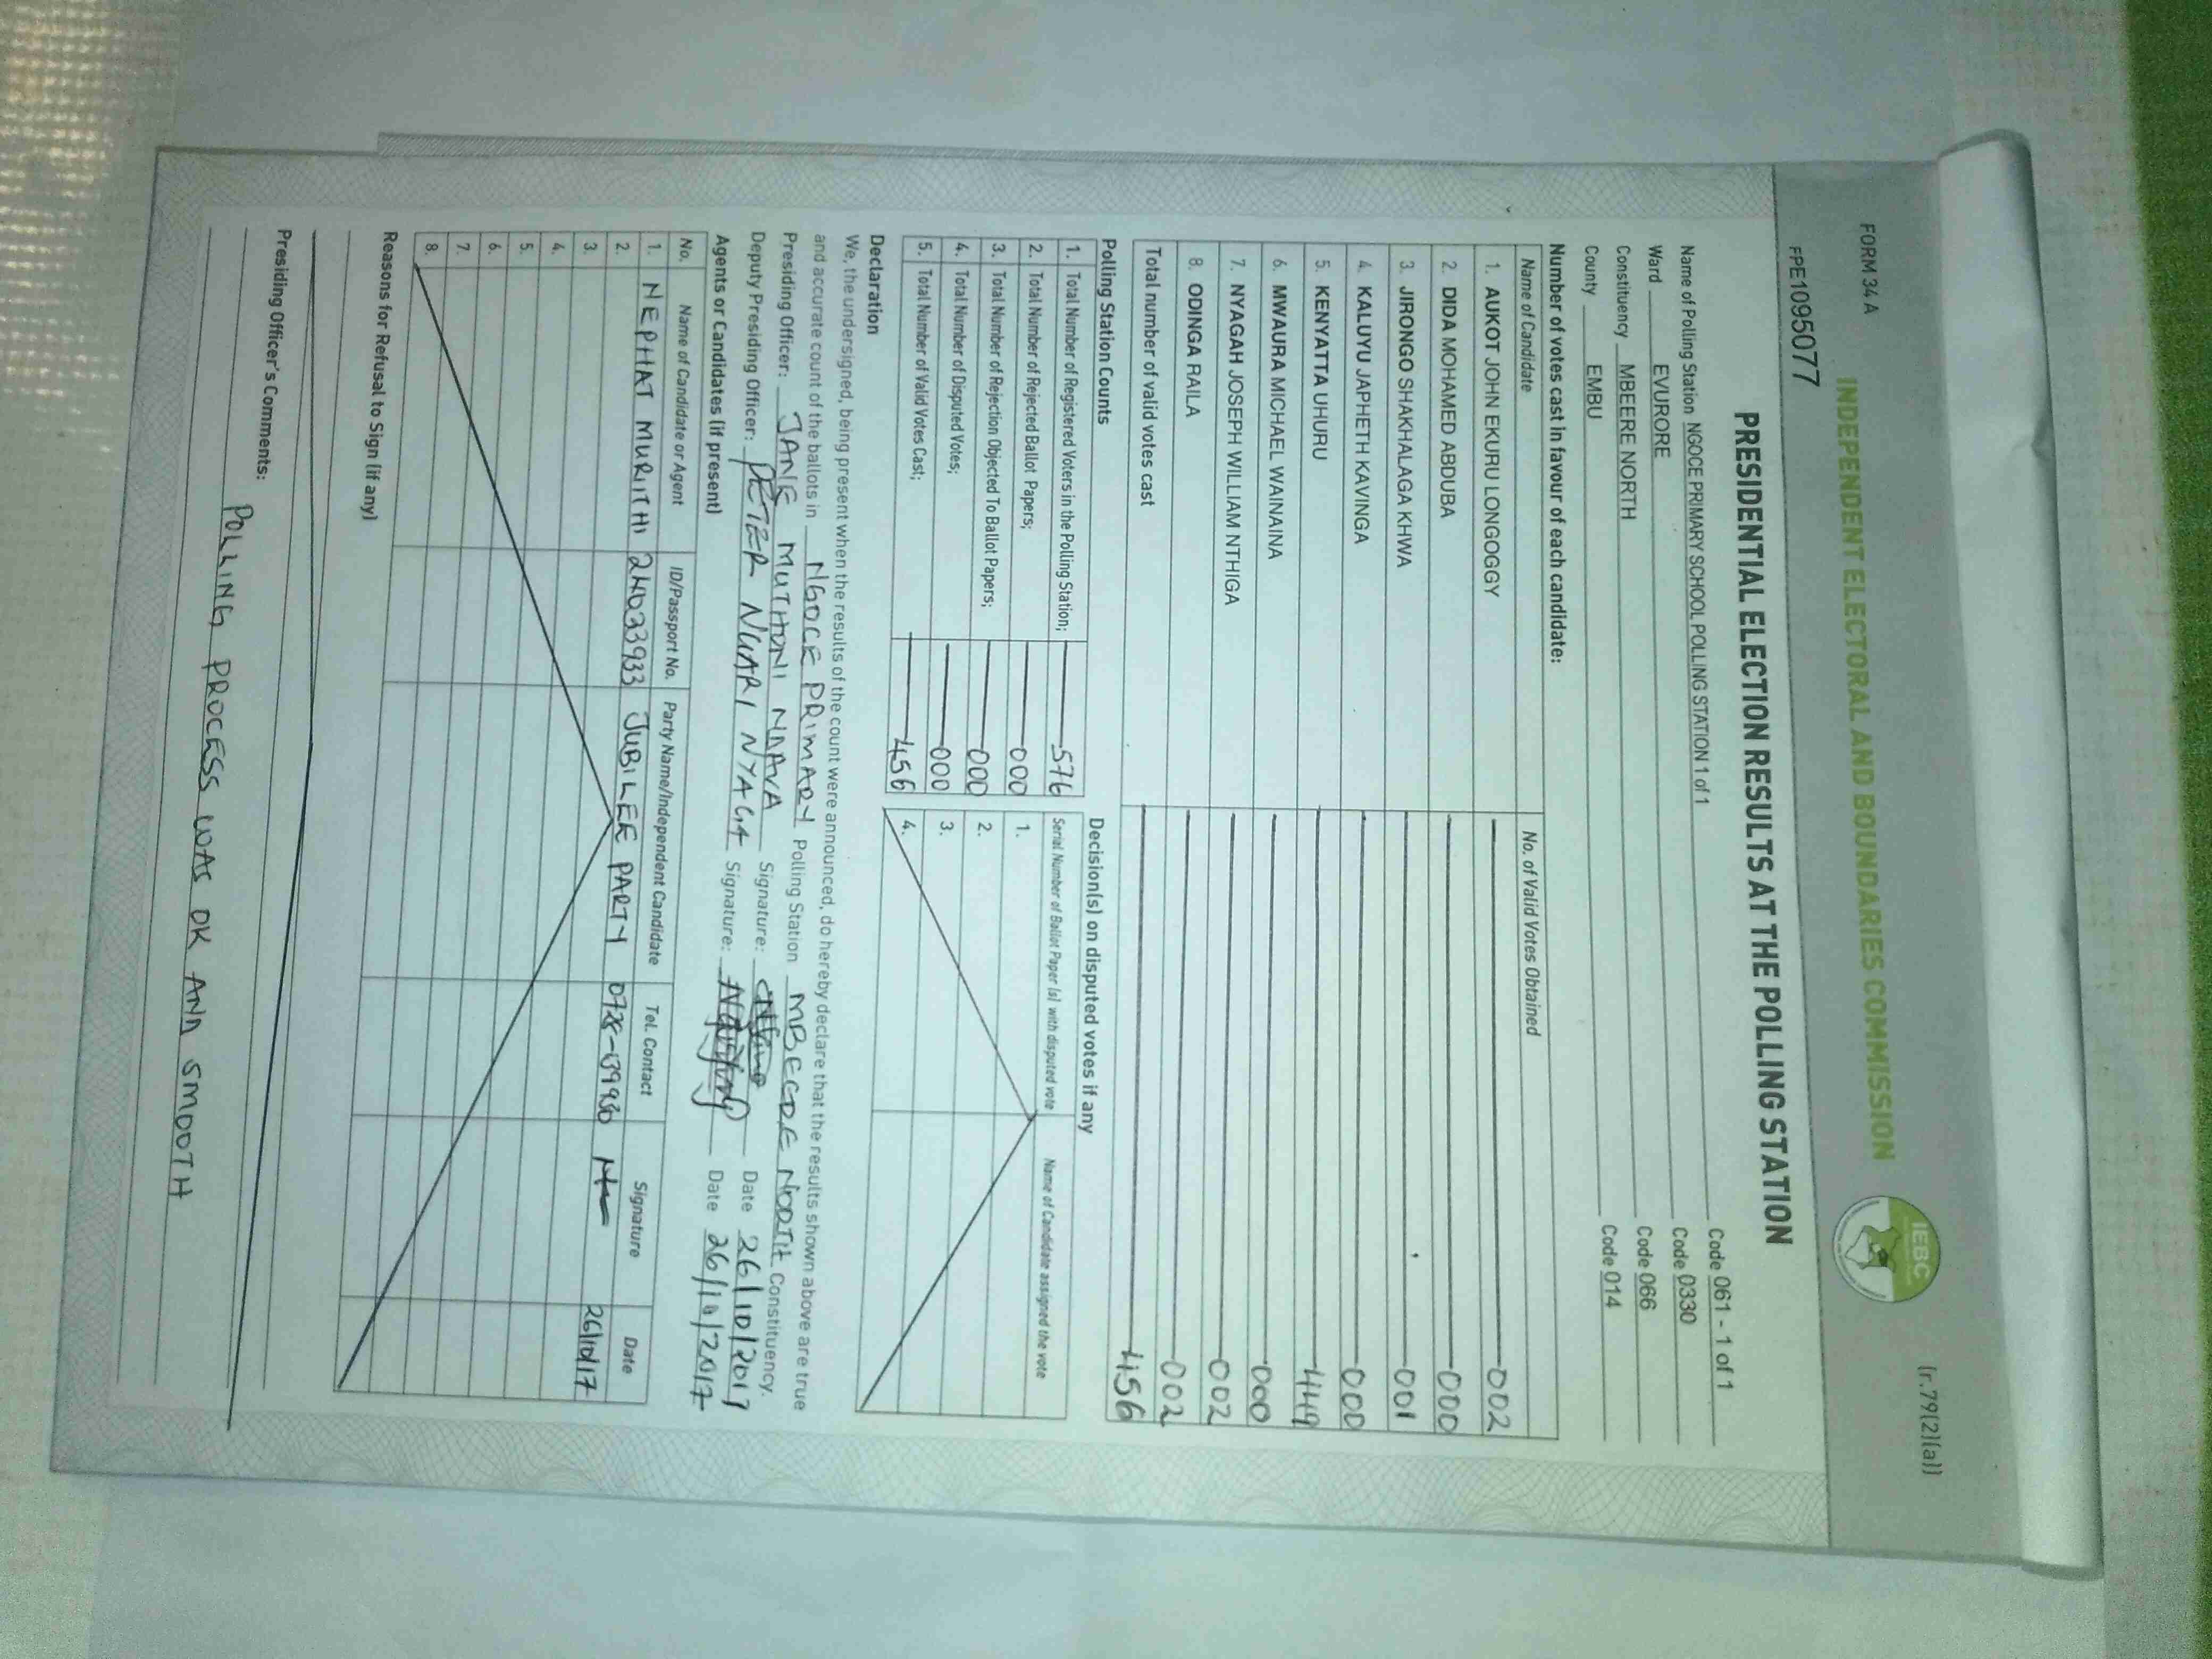 FORM 34 A
(r.79(2)(a))
INDEPENDENT ELECTORAL AND BOUNDARIES COMMISSION
IEBC
FPE1095077
PRESIDENTIAL ELECTION RESULTS AT THE POLLING STATION
Name of Polling Station NGOCE PRIMARY SCHOOL POLLING STATION 1 of 1 Code 061 - 1 of 1
Ward EVURORE Code 0330
Constituency MBEERE NORTH Code 066
County EMBU Code 014
Number of votes cast in favour of each candidate:
Name of Candidate No. of Valid Votes Obtained
1. AUKOT JOHN EKURU LONGOGGY 002
2. DIDA MOHAMED ABDUBA 000
3. JIRONGO SHAKHALAGA KHWA 001
4. KALUYU JAPHETH KAVINGA 000
5. KENYATTA UHURU 449
6. MWAURA MICHAEL WAINAINA 000
7. NYAGAH JOSEPH WILLIAM NTHIGA 002
8. ODINGA RAILA 002
Total number of valid votes cast 456
Polling Station Counts
1. Total Number of Registered Voters in the Polling Station; 576
2. Total Number of Rejected Ballot Papers; 000
3. Total Number of Rejection Objected To Ballot Papers; 000
4. Total Number of Disputed Votes; 000
5. Total Number of Valid Votes Cast; 456
Decision(s) on disputed votes if any
Serial Number of Ballot Paper (s) with disputed vote Name of Candidate assigned the vote
1.
2.
3.
4.
Declaration
We, the undersigned, being present when the results of the count were announced, do hereby declare that the results shown above are true
and accurate count of the ballots in NGOCE PRIMARY Polling Station MBEERE NORTH Constituency.
Presiding Officer: JANE MUTHONI Signature: Date 26/10/2017
Deputy Presiding Officer: PETER NGARI NYAGA Signature: Date 26/10/2017
Agents or Candidates (if present)
No. Name of Candidate or Agent ID/Passport No. Party Name/Independent Candidate Tel. Contact Signature Date
1. NEPHAT MURIITHI 24033933 JUBILEE PARTY 26/10/17
2.
3.
4.
5.
6.
7.
8.
Reasons for Refusal to Sign (if any)
Presiding Officer's Comments:
POLLING PROCESS WAS OK AND SMOOTH